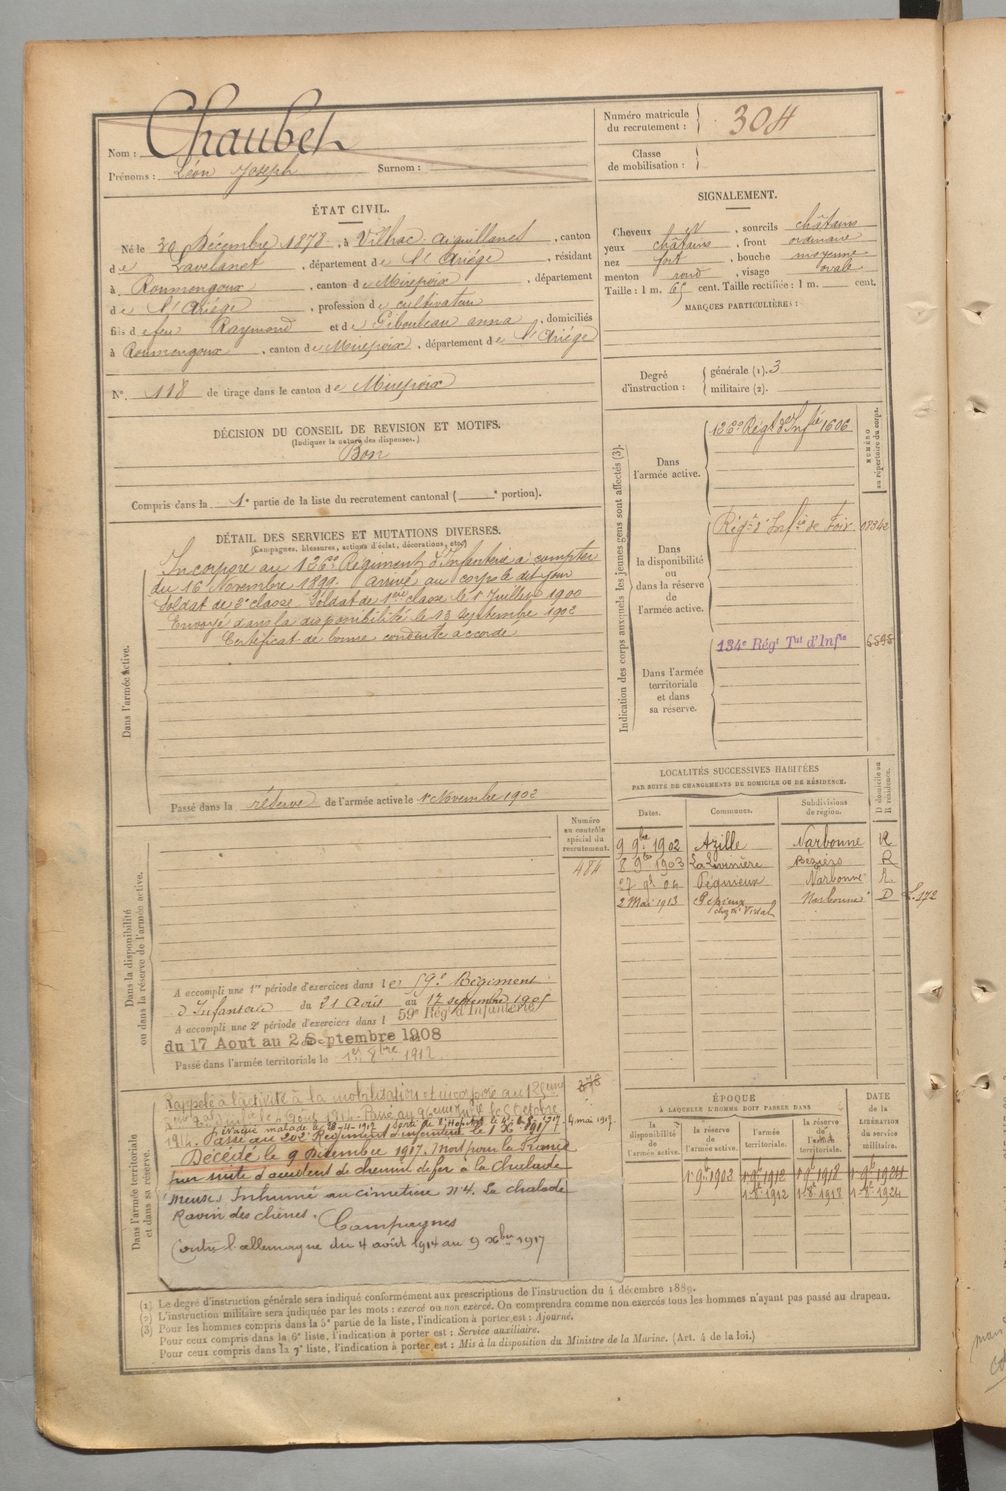 Nom : Chaubet
Prénoms : Léon Joseph Surnom :
Numéro matricule du recrutement : 304
Classe de mobilisation :
ÉTAT CIVIL.
Né le 30 Décembre 1878, à Vilhac-Aiguillanes, canton
de Lavelanet, département de l'Ariége, résidant
à Roumengoux, canton de Mirepoix, département
de l'Ariége, profession de cultivateur
fils de feu Raymond et de Gibouleau anna, domiciliés
à Roumengoux, canton de Mirepoix, département de l'Ariége
N° 118 de tirage dans le canton de Mirepoix
SIGNALEMENT.
Cheveux , sourcils châtains
yeux châtains, front ordinaire
nez fort, bouche moyenne
menton rond, visage ovale
Taille : 1 m. 65 cent. Taille rectifiée : 1 m. cent.
MARQUES PARTICULIÈRES :
Degré d'instruction : générale (1). 3
militaire (2).
DÉCISION DU CONSEIL DE REVISION ET MOTIFS.
(Indiquer la nature des dispenses.)
Bon
Compris dans la 1e partie de la liste du recrutement cantonal ( e portion).
DÉTAIL DES SERVICES ET MUTATIONS DIVERSES.
(Campagnes, blessures, actions d'éclat, décorations, etc.)
Dans l'armée active.
Incorporé au 126me Régiment d'Infanterie à compter
du 16 Novembre 1899. arrivé au corps le dit jour
Soldat de 2e classe. Soldat de 1ere classe le 1 Juillet 1900
Envoyé dans la disponibilité le 13 septembre 1902
Certificat de bonne conduite accordé
Passé dans la réserve de l'armée active le 1er Novembre 1902
Indication des corps auxquels les jeunes gens sont affectés (3).
NUMÉRO au répertoire du corps.
Dans l'armée active.
126e Régt d'Infie 1606
Dans la disponibilité ou dans la réserve de l'armée active.
Régt d'Infie de Foix
Dans l'armée territoriale et dans sa réserve.
134e Régt Tal d'Infie 6595
LOCALITÉS SUCCESSIVES HABITÉES
PAR SUITE DE CHANGEMENTS DE DOMICILE OU DE RÉSIDENCE.
Dates. Communes. Subdivisions de région. D domicile ou R résidence.
9 9bre 1902 Azille Narbonne R
8 9bre 1903 La Livinière Béziers R
27 04 Pépieux Narbonne R
2 Mai 1913 Pépieux Narbonne D L.172
chez Mr Vidal
Dans la disponibilité ou dans la réserve de l'armée active.
Numéro au contrôle spécial du recrutement.
484
A accompli une 1re période d'exercices dans le 59e Régiment
d'Infanterie du 21 Août au 17 septembre 1905
A accompli une 2e période d'exercices dans l 59e Régt d'Infanterie
du 17 Aout au 2 Septembre 1908
Passé dans l'armée territoriale le 1er 8bre 1912
Dans l'armée territoriale et dans sa réserve.
Rappelé à l'activité à la mobilisation et incorporé au
1914. Passé au 96eme Infie le 6 Octobre
1914. Evacué malade le 28-4-1917
Passé au 202e Régiment d'infanterie le 1 1917
4 mai 1917.
Décédé le 9 Décembre 1917. Mort pour la France
par suite d'accident de chemin de fer à la Chalade
(Meuse). Inhumé au cimetiere N°4. La chalade
Ravin des chênes.
Campagnes
Contre l'allemagne du 4 août 1914 au 9 xbre 1917
ÉPOQUE
À LAQUELLE L'HOMME DOIT PASSER DANS
la disponibilité de l'armée active. la réserve de l'armée active. l'armée territoriale. la réserve de l'armée territoriale.
DATE de la LIBÉRATION du service militaire.
1r 9bre 1902 1r 9bre 1912 1r 9bre 1918 1r 9bre 1924
1r 8bre 1912 1r 8bre 1918 1r 8bre 1924
(1) Le degré d'instruction générale sera indiqué conformément aux prescriptions de l'instruction du 4 décembre 1889.
(2) L'instruction militaire sera indiquée par les mots : exercé ou non exercé. On comprendra comme non exercés tous les hommes n'ayant pas passé au drapeau.
(3) Pour les hommes compris dans la 5e partie de la liste, l'indication à porter est : Ajourné.
Pour ceux compris dans la 6e liste, l'indication à porter est : Service auxiliaire.
Pour ceux compris dans la 7e liste, l'indication à porter est : Mis à la disposition du Ministre de la Marine. (Art. 4 de la loi.)